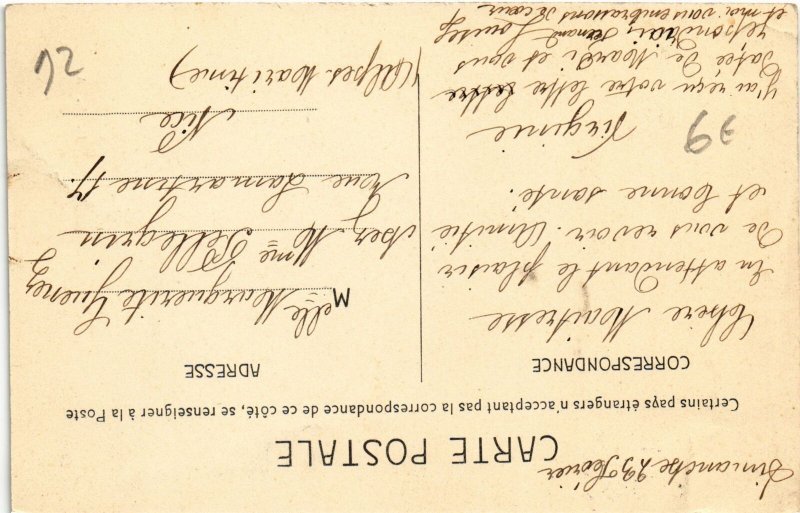 Dimanche 23 Février
CARTE POSTALE
Certains pays étrangers n'acceptant pas la correspondance de ce côté, se renseigner à la Poste
CORRESPONDANCE
Chère Maîtresse
En attendant le plaisir
de vous revoir. Amitié
et bonne santé.
Virginie
J'ai reçu votre lettre
datée de Mardi et vous
et moi vous embrassons de cœur
6E
ADRESSE
Melle Marguerite
chez Mme Pellegrin
Rue Lamartine 17.
Nice
(Alpes Maritime)
12